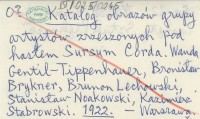 02 Katalog obrazów grupy
artystów zrzeszonych pod
hasłem Sursum Corda. Wanda
Gentil-Tippenhauer, Bronisław
Brykner, Brunon Lechowski,
Stanisław Noakowski, Kazimierz
Stabrowski. 1922. - Warszawa